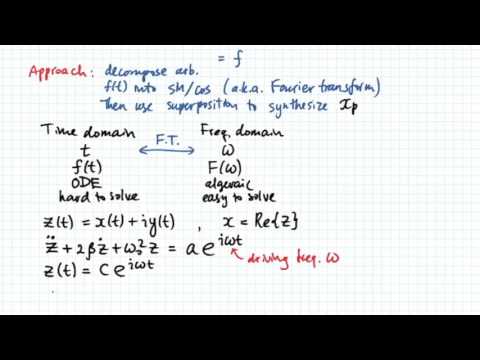 = f
Approach: decompose arb.
f(t) into sin/cos (a.k.a. Fourier transform)
Then use superposition to synthesize xp
Time domain F.T. Freq. domain
t ω
f(t) F(ω)
ODE algeraic
hard to solve easy to solve
z(t) = x(t) + iy(t) , x = Re{z}
z̈ + 2βż + ω₀²z = a e^{iωt}
driving freq. ω
z(t) = C e^{iωt}